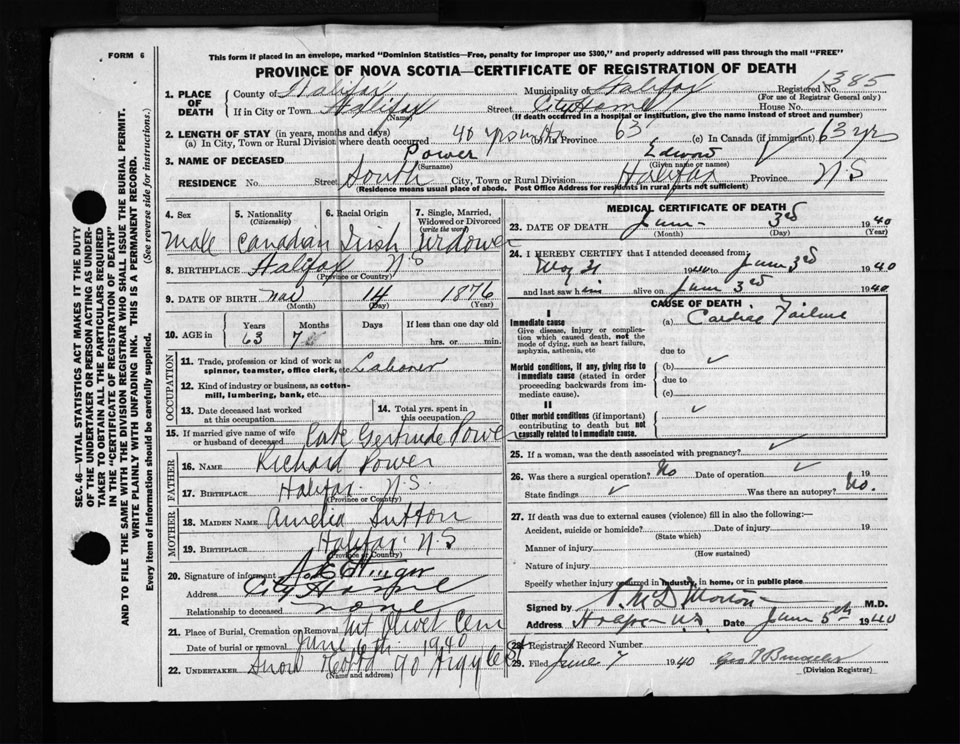 FORM 6
This form if placed in an envelope, marked "Dominion Statistics—Free, penalty for improper use $300," and properly addressed will pass through the mail "FREE"
PROVINCE OF NOVA SCOTIA—CERTIFICATE OF REGISTRATION OF DEATH
1. PLACE OF DEATH County of Halifax Municipality of Halifax Registered No. 1385
(For use of Registrar General only)
If in City or Town Halifax Street City Home House No.
(Name) (If death occurred in a hospital or institution, give the name instead of street and number)
2. LENGTH OF STAY (in years, months and days)
(a) In City, Town or Rural Division where death occurred 40 yrs (b) In Province 63 (c) In Canada (if immigrant) 63 yrs
3. NAME OF DECEASED Power Edward
(Surname) (Given name or names)
RESIDENCE No. Street South City, Town or Rural Division Halifax Province N.S
(Residence means usual place of abode. Post Office Address for residents in rural parts not sufficient)
4. Sex 5. Nationality (Citizenship) 6. Racial Origin 7. Single, Married, Widowed or Divorced (write the word)
Male Canadian Irish Widower
8. BIRTHPLACE Halifax N S
(Province or Country)
9. DATE OF BIRTH 14 1876
(Month) (Day) (Year)
10. AGE in Years Months Days If less than one day old
63 7 hrs. or min.
OCCUPATION
11. Trade, profession or kind of work as spinner, teamster, office clerk, etc. Laborer
12. Kind of industry or business, as cotton-mill, lumbering, bank, etc.
13. Date deceased last worked at this occupation 14. Total yrs. spent in this occupation
15. If married give name of wife or husband of deceased Late Gertrude Power
FATHER
16. NAME Richard Power
17. BIRTHPLACE Halifax N.S.
(Province or Country)
MOTHER
18. MAIDEN NAME Amelia Sutton
19. BIRTHPLACE Halifax N.S
(Province or Country)
20. Signature of informant
Address City Home
Relationship to deceased none
21. Place of Burial, Cremation or Removal Mt Olivet Cem
Date of burial or removal June 6th 1940
22. UNDERTAKER Snow 90 Argyle St
(Name and address)
MEDICAL CERTIFICATE OF DEATH
23. DATE OF DEATH June 3rd 1940
(Month) (Day) (Year)
24. I HEREBY CERTIFY that I attended deceased from:
1940 to June 3rd 1940
and last saw him alive on June 3rd 1940
CAUSE OF DEATH
I
Immediate cause (a) Cardiac Failure
Give disease, injury or complication which caused death, not the mode of dying, such as heart failure, asphyxia, asthenia, etc
due to
Morbid conditions, if any, giving rise to immediate cause (stated in order proceeding backwards from immediate cause)
(b) ✓
due to
(c)
II
Other morbid conditions (if important) contributing to death but not causally related to immediate cause. ✓
25. If a woman, was the death associated with pregnancy? ✓
26. Was there a surgical operation? No Date of operation ✓ 19
State findings ✓ Was there an autopsy? No.
27. If death was due to external causes (violence) fill in also the following:—
Accident, suicide or homicide? Date of injury 19
(State which)
Manner of injury
(How sustained)
Nature of injury
Specify whether injury occurred in industry, in home, or in public place
Signed by Morton M.D.
Address Halifax N.S. Date June 5th 1940
28. Registrar's Record Number
29. Filed June 7 1940
(Division Registrar)
SEC. 46—VITAL STATISTICS ACT MAKES IT THE DUTY
OF THE UNDERTAKER OR PERSON ACTING AS UNDER-
TAKER TO OBTAIN ALL THE PARTICULARS REQUIRED
IN THE "CERTIFICATE OF REGISTRATION OF DEATH"
AND TO FILE THE SAME WITH THE DIVISION REGISTRAR WHO SHALL ISSUE THE BURIAL PERMIT.
WRITE PLAINLY WITH UNFADING INK. THIS IS A PERMANENT RECORD.
Every item of information should be carefully supplied. (See reverse side for instructions.)